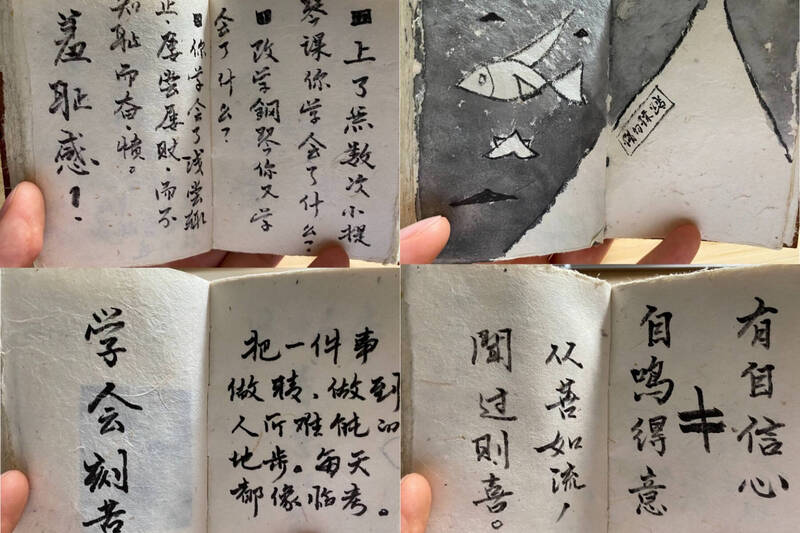 上了無数次小提
琴课你学会了什么?
改学鋼琴你又学
会了什么?
你学会了浅尝辄
止屡尝屡败,而不
知耻而奋愤。
羞耻感!
把一件事
做精,做到
人所难能的
地步。每天
都像临考。
学会刻苦
有自信心
≠
自鸣得意
从善如流,
聞过则喜。